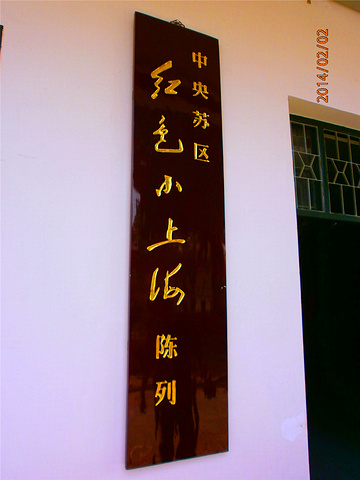 中央苏区
红色小上海
陈列
2014/02/02